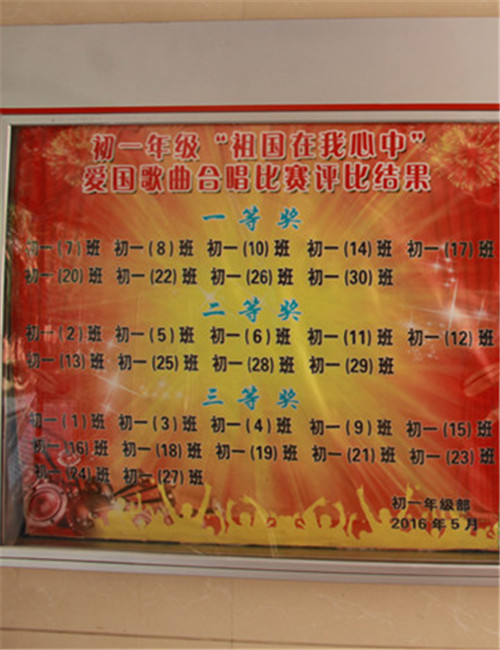 初一年级“祖国在我心中”
爱国歌曲合唱比赛评比结果
一等奖
初一(7)班 初一(8)班 初一(10)班 初一(14)班 初一(17)班
初一(20)班 初一(22)班 初一(26)班 初一(30)班
二等奖
初一(2)班 初一(5)班 初一(6)班 初一(11)班 初一(12)班
初一(13)班 初一(25)班 初一(28)班 初一(29)班
三等奖
初一(1)班 初一(3)班 初一(4)班 初一(9)班 初一(15)班
初一(16)班 初一(18)班 初一(19)班 初一(21)班 初一(23)班
初一(24)班 初一(27)班
初一年级部
2016年5月